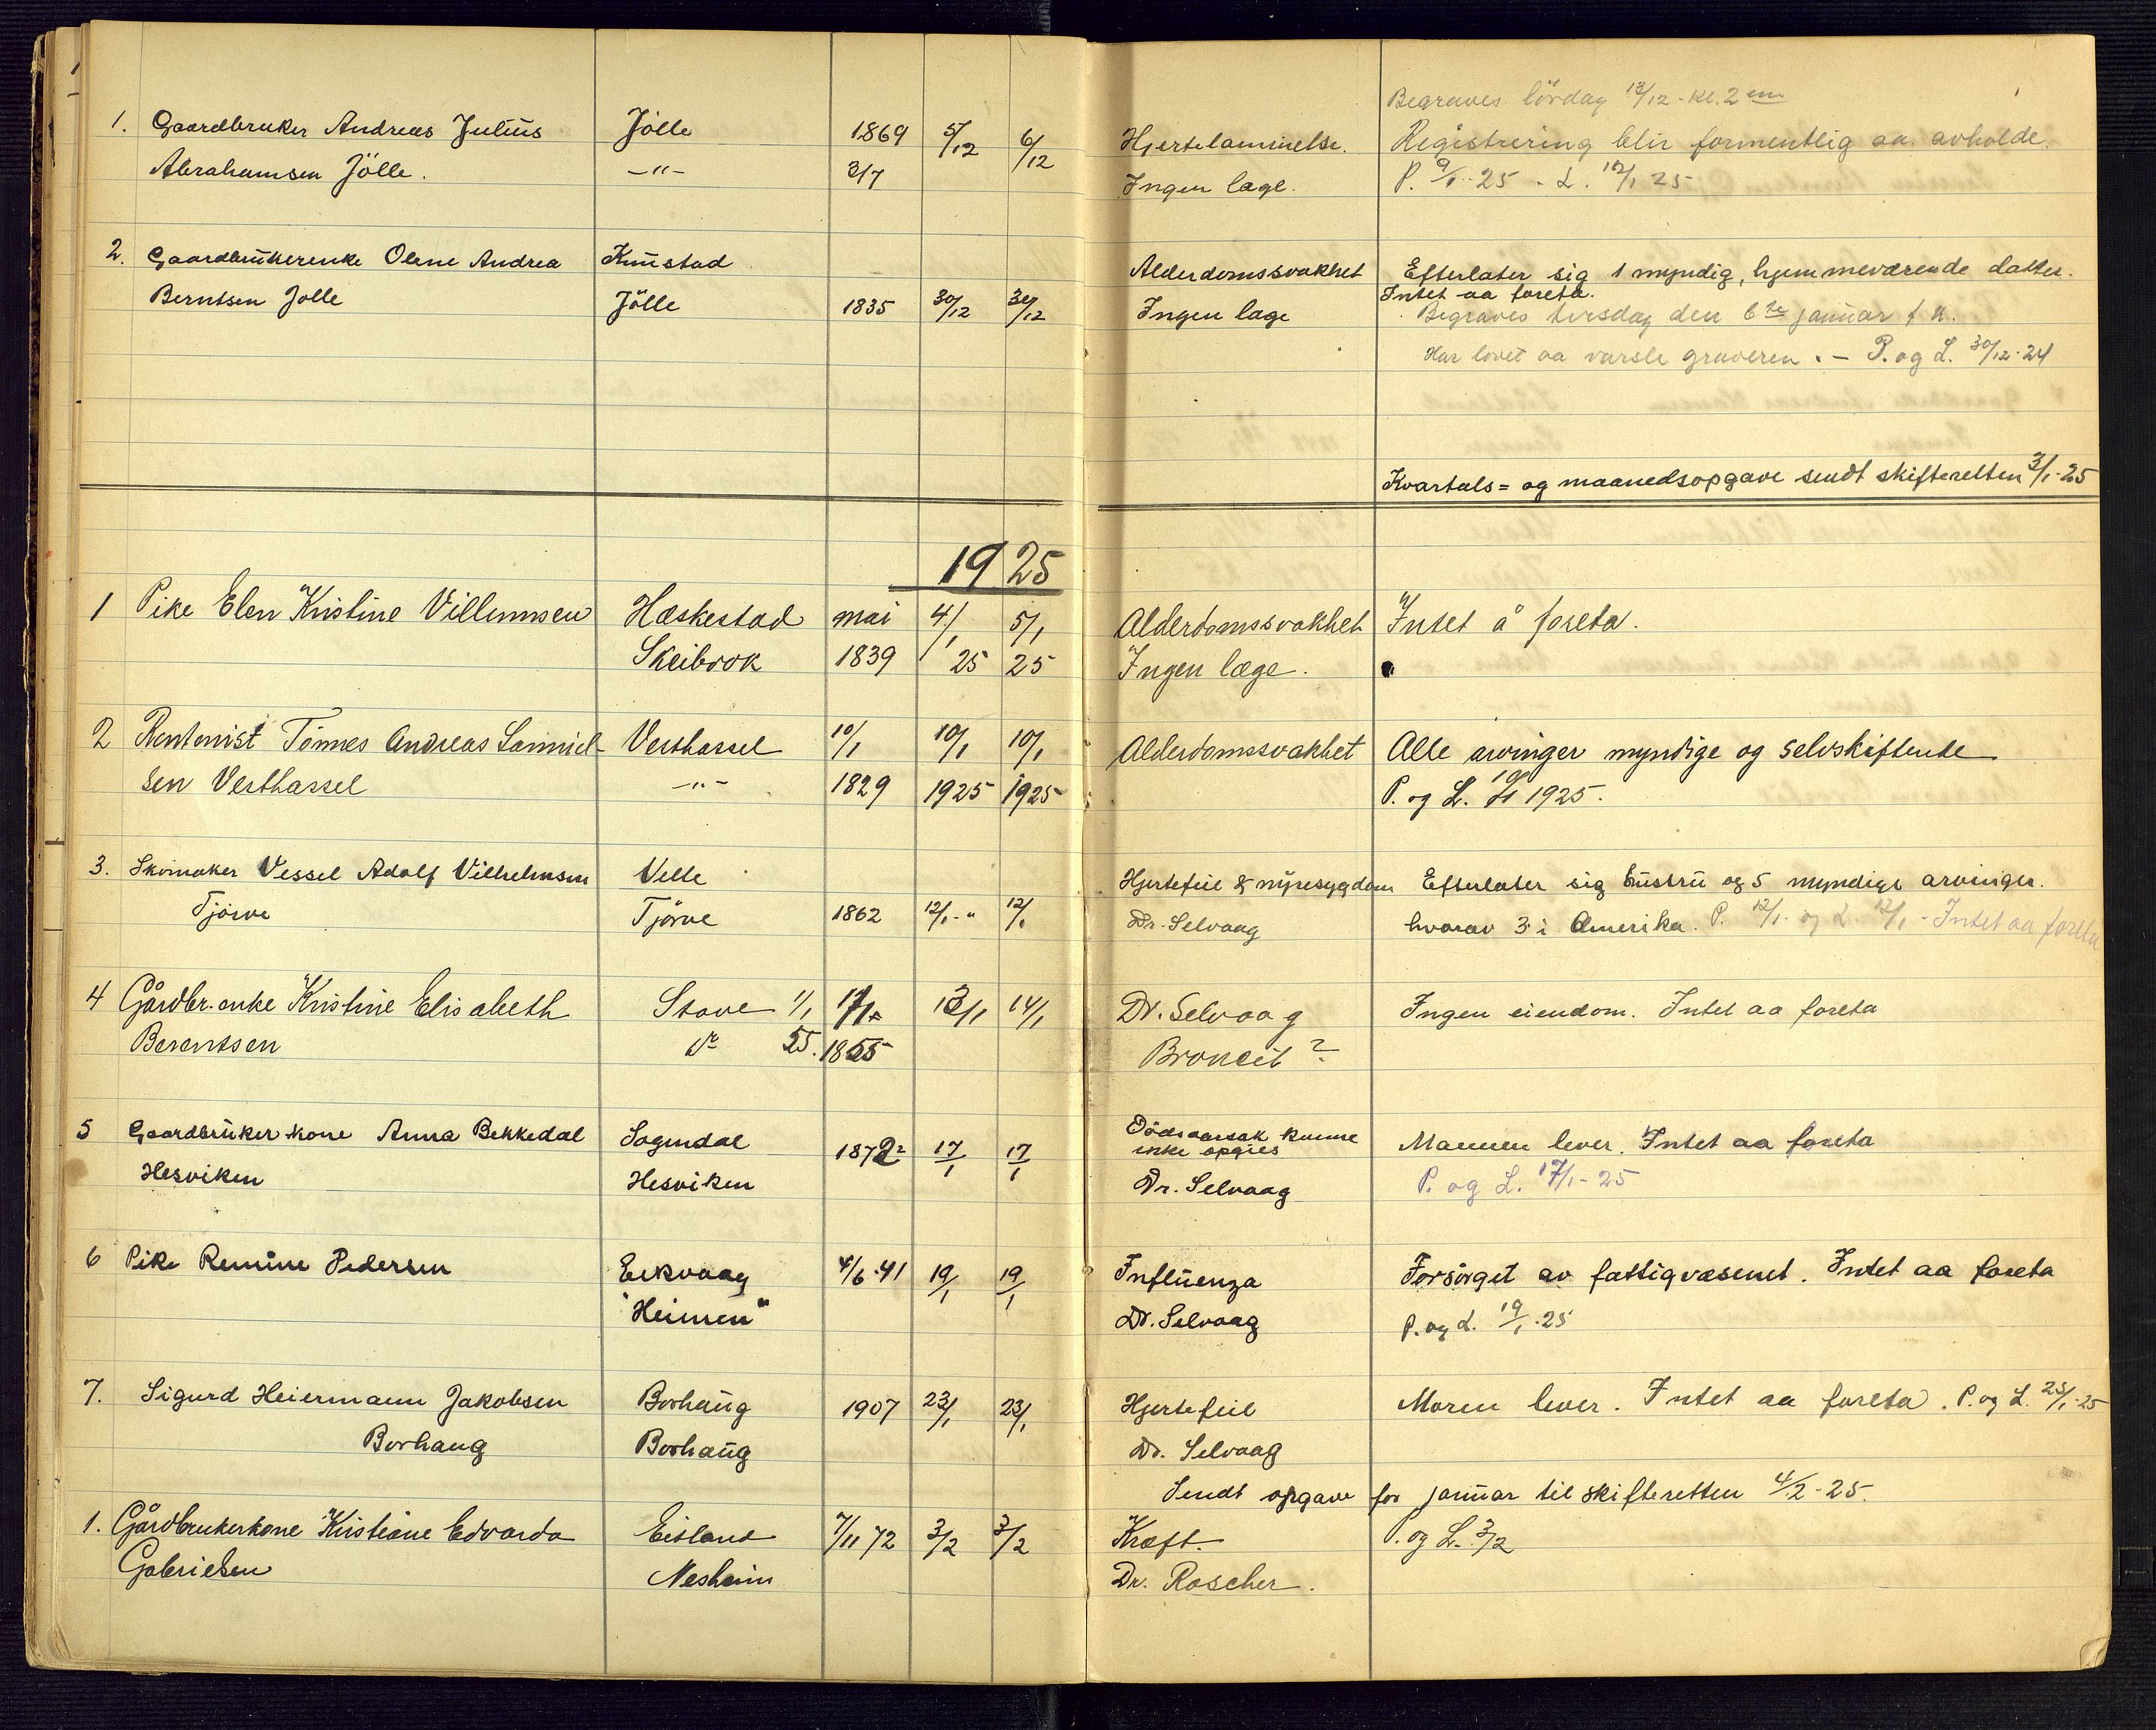 Begraves lördag 13/12 - kl. 2 em
1. Gaardbruker Andreas Julius Jölle 1869 5/12 6/12 Hjertelammelse. Registrering blir formentlig aa avholde.
Abrahamsen Jölle. -"- 3/7 Ingen læge. P. 9/1-25 - L. 12/1 25
2. Gaardbrukerenke Olene Andrea Knustad Alderdomssvakhet Efterlater sig 1 myndig, hjemmeværende datter.
Intet aa foreta.
Berntsen Jölle Jölle 1835 30/12 30/12 Ingen læge Begraves tirsdag den 6te januar f. k.
Har lovet aa varsle graveren. - P. og L. 30/12-24
Kvartals= og maanedsopgave sendt skifteretten 3/1-25
1925
1 Pike Elen Kristine Villumsen Hæskestad mai 4/1 5/1 Alderdomssvakhet Intet å foreta.
Skeibrok 1839 25 25 Ingen læge.
2 Rentenist Tönnes Andreas Samuel- Vesthassel 10/1 10/1 10/1 Alderdomssvakhet Alle arvinger myndige og selvskiftende
sen Vesthassel -"- 1829 1925 1925 P. og L. 10/1 1925.
3. Skomaker Vessel Adolf Vilhelmsen Velle Hjertefeil & nyresygdom Efterlater sig hustru og 5 myndige arvinger.
Tjörve Tjörve 1862 12/1-" 12/1 Dr. Selvaag hvorav 3 i Amerika. P. 12/1 og L. 12/1 - Intet aa foreta
4 Gårdbr.enke Kristine Elisabeth Stave 1/1 13/1 14/1 Dr. Selvaag Ingen eiendom. Intet aa foreta
Berentsen do 55. 1855 Bronkit?
5 Gaardbruker kone Anna Bekkedal Sogndal 1872 17/1 17/1 Dödsaarsak kunne Mannen lever. Intet aa foreta
ikke opgies
Hesviken Hesviken Dr. Selvaag P. og L. 17/1-25
6 Pike Remine Pedersen Eekvaag 4/6-41 19/1 19/1 Influenza Forsörget av fattigvæsenet. Intet aa foreta
"Heimen" Dr. Selvaag P. og L. 19/1-25
7. Sigurd Heiermann Jakobsen Borhaug 1907 23/1 23/1 Hjertefeil Moren lever. Intet aa foreta. P. og L. 23/1-25
Borhaug Borhaug Dr. Selvaag
Sendt opgave for januar til skifteretten 4/2-25.
1. Gårdbrukerkone Kristiane Edvarda Eitland 7/11 72 3/2 3/2 Kræft. P. og L. 3/2
Gabrielsen Nesheim Dr. Roscher.